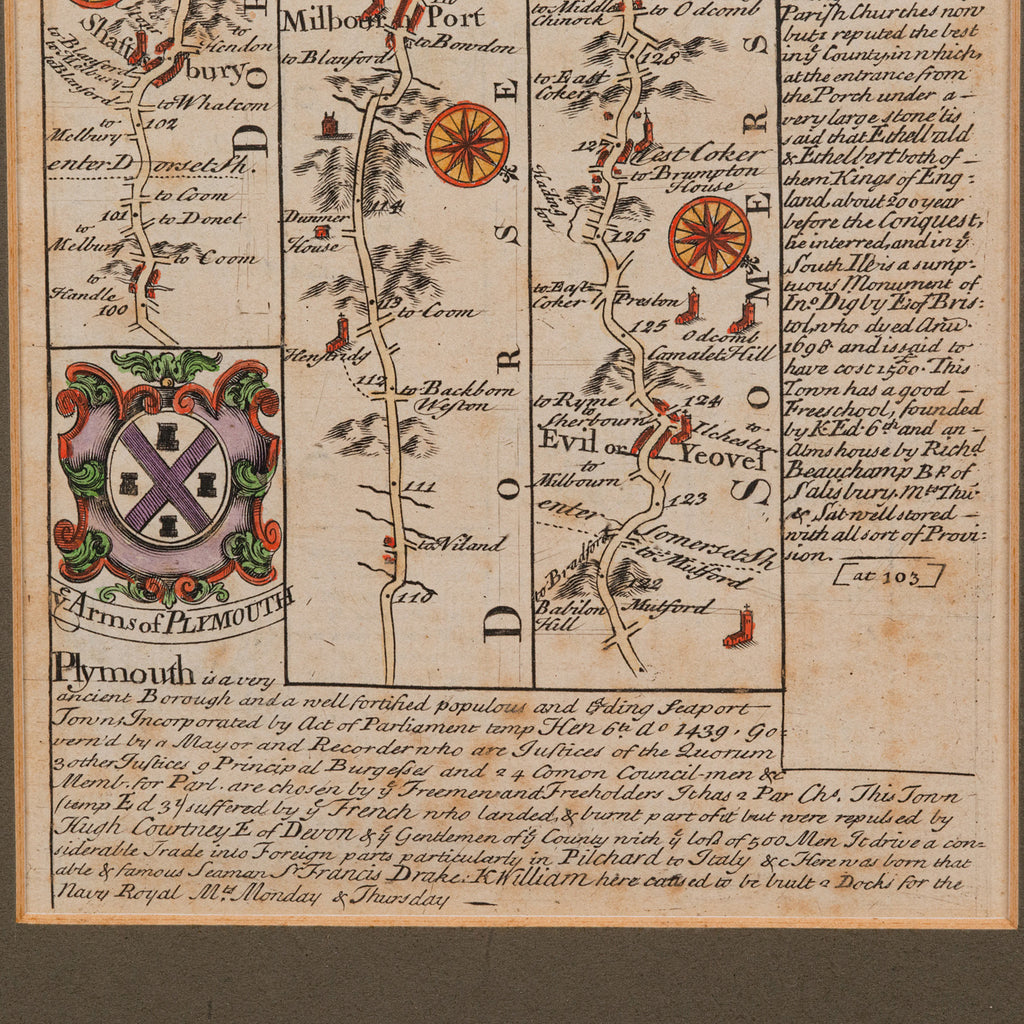 Shafts
bury
to
Hendon
to Blanford
to Melbury
to Blanford
to Whatcom
102
to
Melbury
enter Dorset Sh.
to Coom
101
to Donet
to
Melbury
to Coom
to
Handle
100
D O
ye Arms of PLYMOUTH
Milbourn Port
to Bowdon
to Blanford
114
Dunmer
House
113
to Coom
Henstridg
112
to Backborn
Weston
111
to Niland
110
D O R S E
to Middle
Chinock
to Odcomb
128
to East
Coker
127
West Coker
to Brumpton
House
Hading
ton
126
to East
Coker
Preston
125
Odcomb
Camalet Hill
to Ryme
124
to
Sherbourn
to
Ilchester
Evil or Yeovel
to
Milbourn
123
enter
Somerset Sh
to Mutford
to Bradford
122
Babilon
Hill
Mutford
S O M E R S
Parish Churches now
but: reputed the best
in ye County, in which,
at the entrance from
the Porch under a
very large stone 'tis
said that Ethelbald
& Ethelbert both of
them Kings of Eng=
land, about 200 year
before the Conquest,
lie interred, and in ye
South Ile is a sump=
tuous Monument of
Ino. Digby Esq of Bris=
tol, who dyed Ano.
1698 and is said to
have cost £1500. This
Town has a good
Freeschool, founded
by K. Ed. 6th and an
Almshouse by Richd
Beauchamp Bp. of
Salisbury. Mts Thu
& Sat well stored
with all sort of Provi=
sion.
at 103
Plymouth is a very
ancient Borough and a well fortified populous and trading seaport
Town, Incorporated by Act of Parliament temp Hen 6th Ao 1439. Go=
vern'd by a Mayor and Recorder who are Justices of the Quorum
3 other Justices 9 Principal Burgesses and 24 Comon Council-men &c
Memb. for Parl. are chosen by ye Freemen and Freeholders It has 2 Par Chs. This Town
(temp Ed 3d) suffered by ye French who landed, & burnt part of it but were repulsed by
Hugh Courtney E of Devon & ye Gentlemen of ye County with ye loss of 500 Men It drive a con=
siderable Trade into Foreign parts partitularly in Pilchard to Italy &c Here was born that
able & famous Seaman Sr Francis Drake: K William here caused to be built 2 Docks for the
Navy Royal Mts. Monday & Thursday